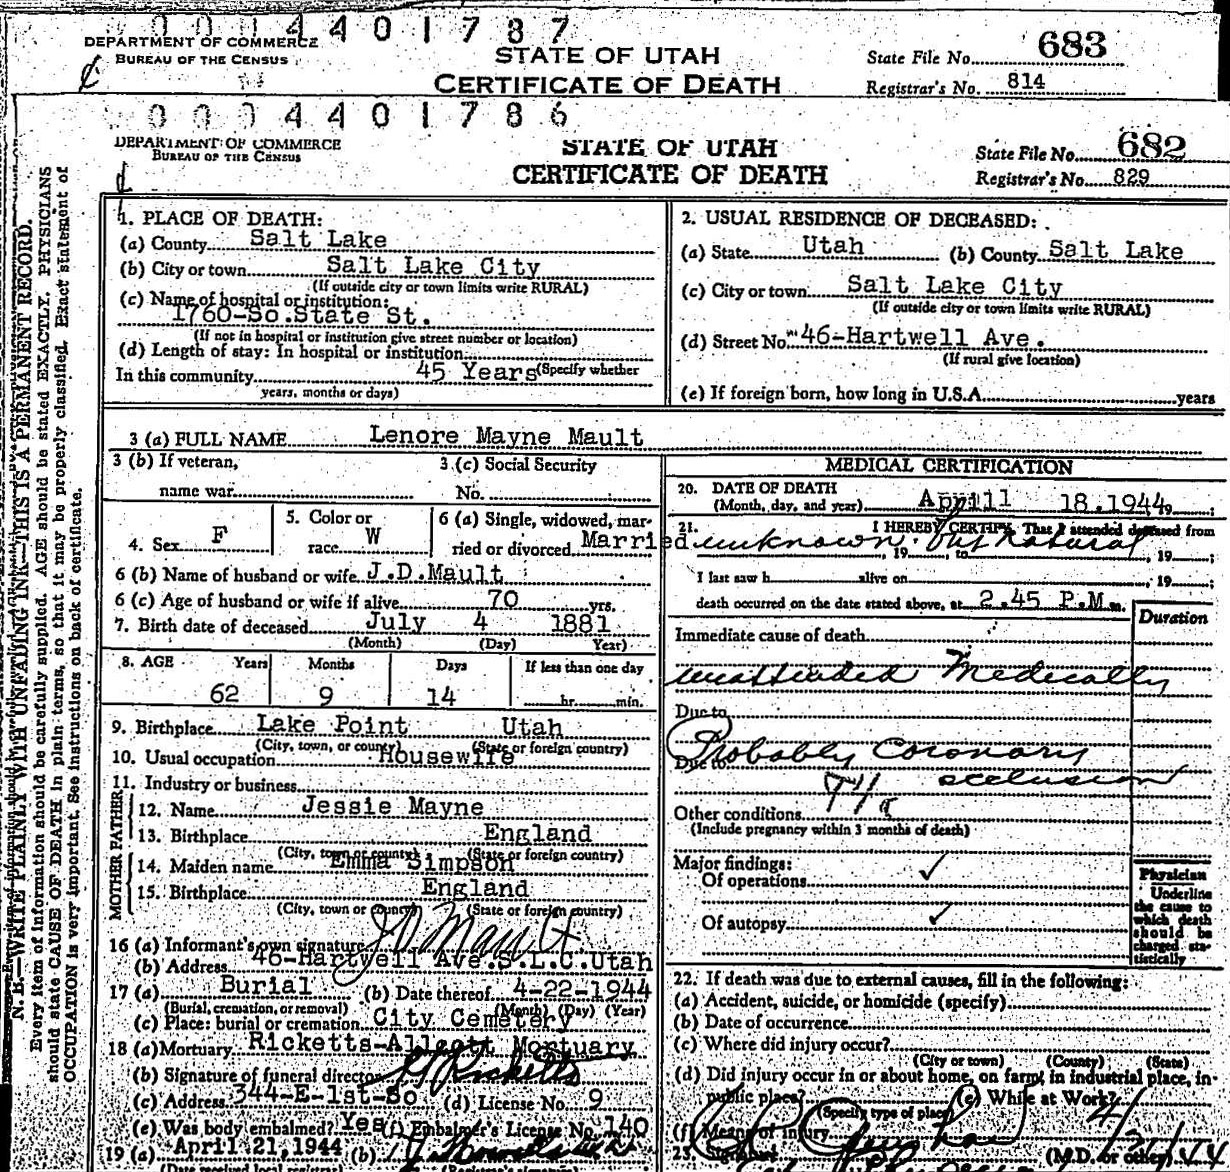 0 0 0 4 4 0 1 7 8 7
DEPARTMENT OF COMMERCE
BUREAU OF THE CENSUS
STATE OF UTAH
CERTIFICATE OF DEATH
State File No. 683
Registrar's No. 814
0 0 0 4 4 0 1 7 8 6
DEPARTMENT OF COMMERCE
BUREAU OF THE CENSUS
STATE OF UTAH
CERTIFICATE OF DEATH
State File No. 682
Registrar's No. 829
N. B.—WRITE PLAINLY WITH UNFADING INK—THIS IS A PERMANENT RECORD.
Every item of information should be carefully supplied. AGE should be stated EXACTLY. PHYSICIANS
should state CAUSE OF DEATH in plain terms, so that it may be properly classified. Exact statement of
OCCUPATION is very important. See instructions on back of certificate.
1. PLACE OF DEATH:
(a) County Salt Lake
(b) City or town Salt Lake City
(If outside city or town limits write RURAL)
(c) Name of hospital or institution:
1760-So.State St.
(If not in hospital or institution give street number or location)
(d) Length of stay: In hospital or institution
In this community 45 Years (Specify whether
years, months or days)
2. USUAL RESIDENCE OF DECEASED:
(a) State Utah (b) County Salt Lake
(c) City or town Salt Lake City
(If outside city or town limits write RURAL)
(d) Street No. 46-Hartwell Ave.
(If rural give location)
(e) If foreign born, how long in U.S.A. years
3 (a) FULL NAME Lenore Mayne Mault
3 (b) If veteran,
name war
3 (c) Social Security
No.
4. Sex F
5. Color or
race W
6 (a) Single, widowed, mar-
ried or divorced Married
6 (b) Name of husband or wife J.D.Mault
6 (c) Age of husband or wife if alive 70 yrs.
7. Birth date of deceased July 4 1881
(Month) (Day) Year)
8. AGE Years Months Days If less than one day
62 9 14 hr. min.
9. Birthplace Lake Point Utah
(City, town, or county) (State or foreign country)
10. Usual occupation Housewife
11. Industry or business
FATHER
12. Name Jessie Mayne
13. Birthplace England
(City, town or county) (State or foreign country)
MOTHER
14. Maiden name Emma Simpson
15. Birthplace England
(City, town or county) (State or foreign country)
16 (a) Informant's own signature J D Mault
(b) Address 46-Hartwell Ave.S.L.C.Utah
17 (a) Burial (b) Date thereof 4-22-1944
(Burial, cremation, or removal) (Month) (Day) (Year)
(c) Place: burial or cremation City Cemetery
18 (a) Mortuary Ricketts-Allcott Mortuary
(b) Signature of funeral director Ricketts
(c) Address 344-E-1st-So (d) License No. 9
(e) Was body embalmed? Yes (f) Embalmer's License No. 140
19 (a) April 21, 1944 (b)
(Date received local registrar)
MEDICAL CERTIFICATION
20. DATE OF DEATH
(Month, day, and year) Aprill 18.1944 19 ;
21. I HEREBY CERTIFY, That I attended deceased from
unknown but natural
19 , to , 19 ;
I last saw h alive on , 19 ;
death occurred on the date stated above, at 2.45 P.M m.
Duration
Immediate cause of death
unattended Medically
Due to
Probably Coronary
Due to
occlusion
Other conditions
(Include pregnancy within 3 months of death)
Major findings:
Of operations ✓
Of autopsy ✓
Physician
Underline
the cause to
which death
should be
charged sta-
tistically
22. If death was due to external causes, fill in the following:
(a) Accident, suicide, or homicide (specify)
(b) Date of occurrence
(c) Where did injury occur?
(City or town) (County) (State)
(d) Did injury occur in or about home, on farm, in industrial place, in-
public place?
(Specify type of place) (e) While at Work?
(f) Means of injury
23. Signature (M.D. or other)